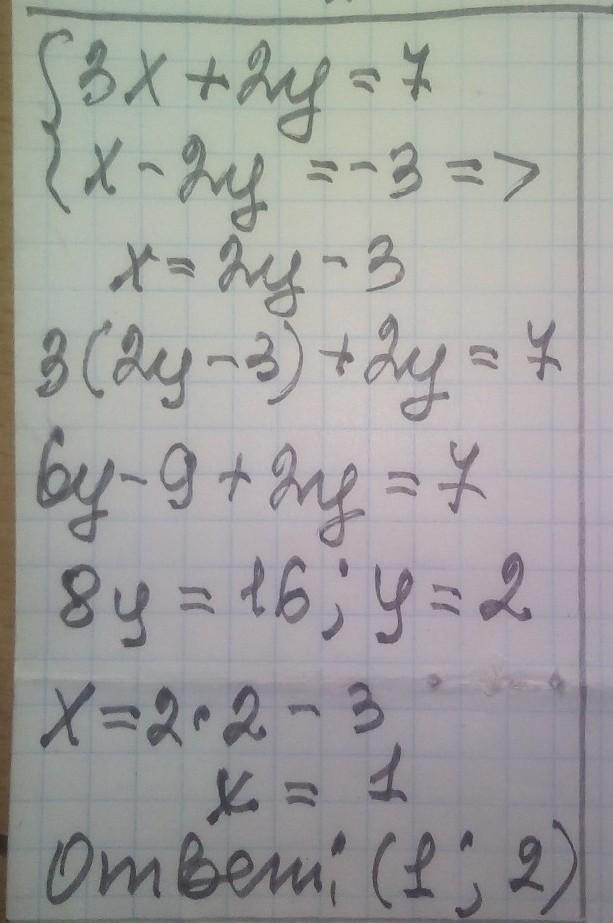 {3x + 2y = 7
{x - 2y = -3 =>
x = 2y - 3
3(2y - 3) + 2y = 7
6y - 9 + 2y = 7
8y = 16; y = 2
x = 2 · 2 - 3
x = 1
Ответ: (1; 2)